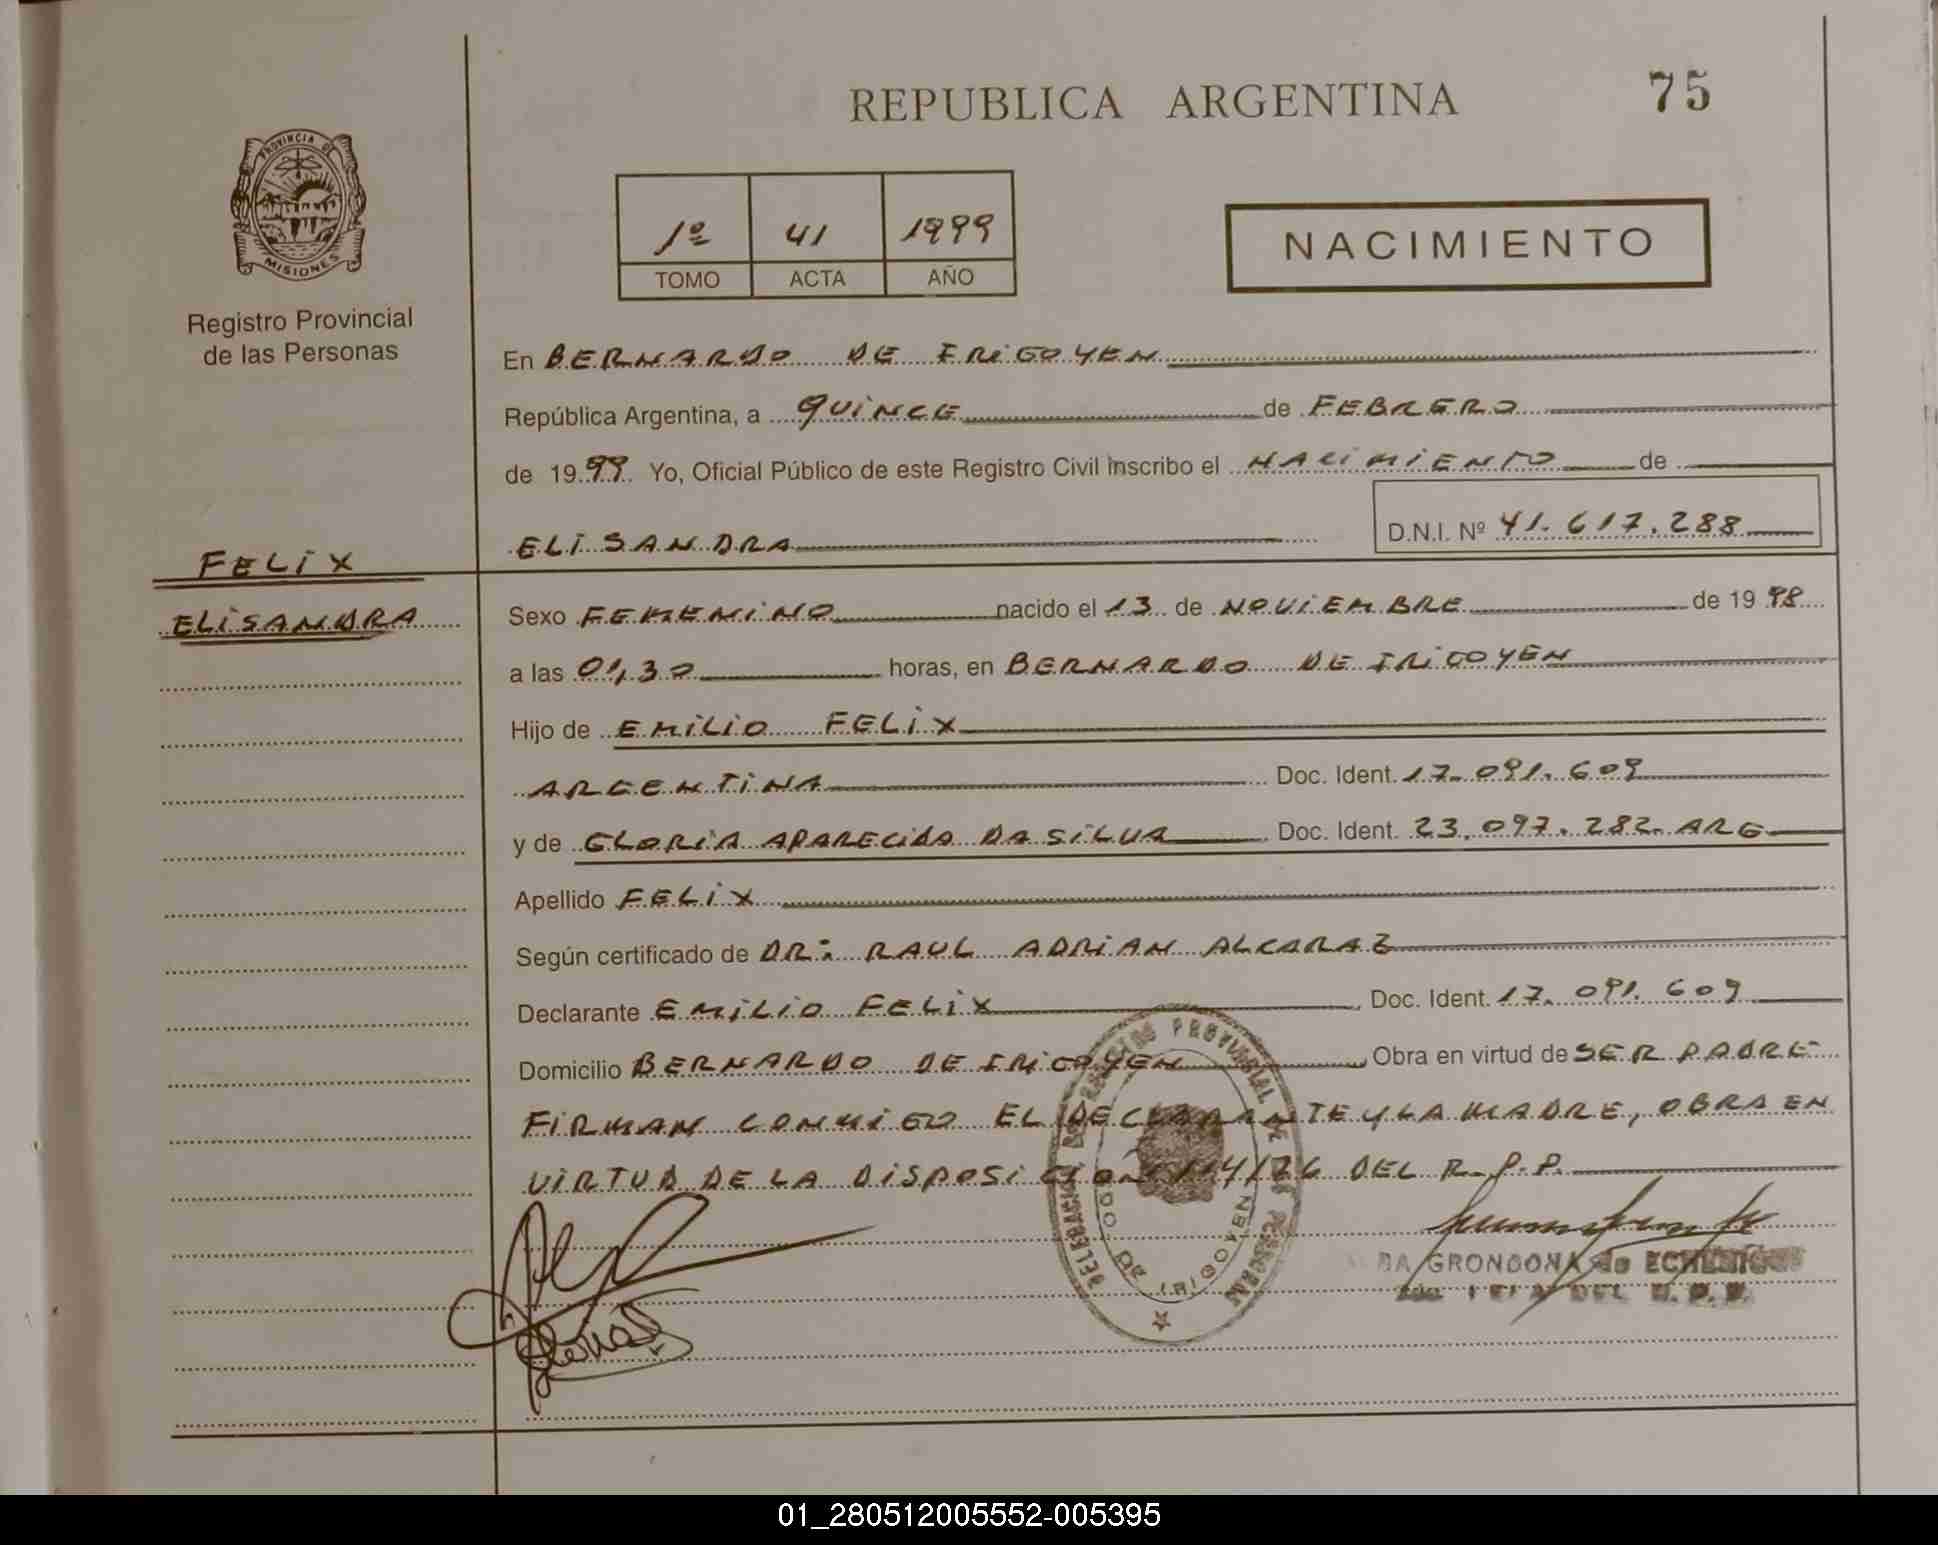 REPUBLICA ARGENTINA
75
PROVINCIA DE
MISIONES
Registro Provincial
de las Personas
1º 41 1999
TOMO ACTA AÑO
NACIMIENTO
En BERNARDO DE IRIGOYEN
República Argentina, a QUINCE de FEBRERO
de 1999 Yo, Oficial Público de este Registro Civil inscribo el NACIMIENTO de
ELISANDRA D.N.I. Nº 41.617.288
FELIX
ELISANDRA
Sexo FEMENINO nacido el 13 de NOVIEMBRE de 1998
a las 01,30 horas, en BERNARDO DE IRIGOYEN
Hijo de EMILIO FELIX
ARGENTINA Doc. Ident. 17.091.609
y de GLORIA APARECIDA DA SILVA Doc. Ident. 23.097.282. ARG
Apellido FELIX
Según certificado de DR: RAUL ADRIAN ALCARAZ
Declarante EMILIO FELIX Doc. Ident. 17.091.609
Domicilio BERNARDO DE IRIGOYEN Obra en virtud de SER PADRE
FIRMAN CONMIGO EL DECLARANTE Y LA MADRE, OBRA EN
VIRTUD DE LA DISPOSICION 114/76 DEL R.P.P.
DELEGACION REGISTRO PROVINCIAL DE LAS PERSONAS
BDO. DE IRIGOYEN
GRONDONA de
DEL R.P.P.
01_280512005552-005395